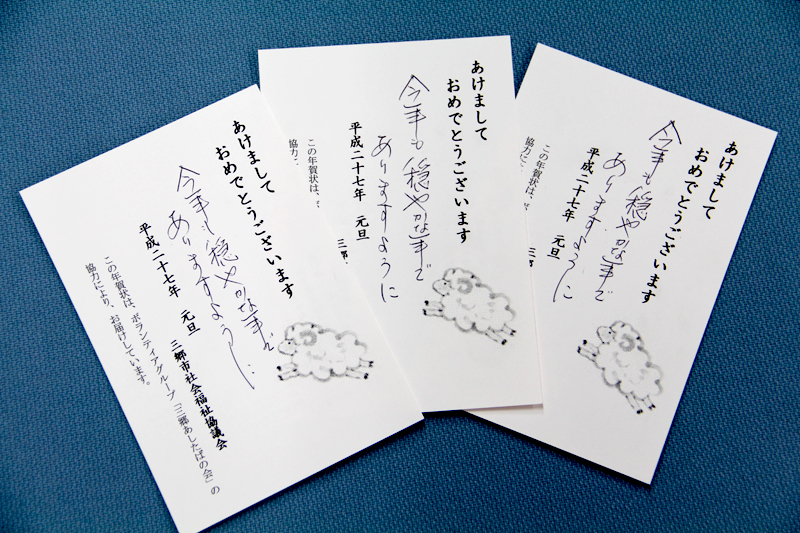 あけまして
おめでとうございます
今年も穏やかな年で
ありますように
平成二十七年 元旦
三郷市社会福祉協議会
この年賀状は、ボランティアグループ「三郷あしたばの会」の
協力により、お届けしています。
あけまして
おめでとうございます
今年も穏やかな年で
ありますように
平成二十七年 元旦
三郷
この年賀状は、ボ
協力に
あけまして
おめでとうございます
今年も穏やかな年で
ありますように
平成二十七年 元旦
三郷
この年賀状は、ボ
協力に